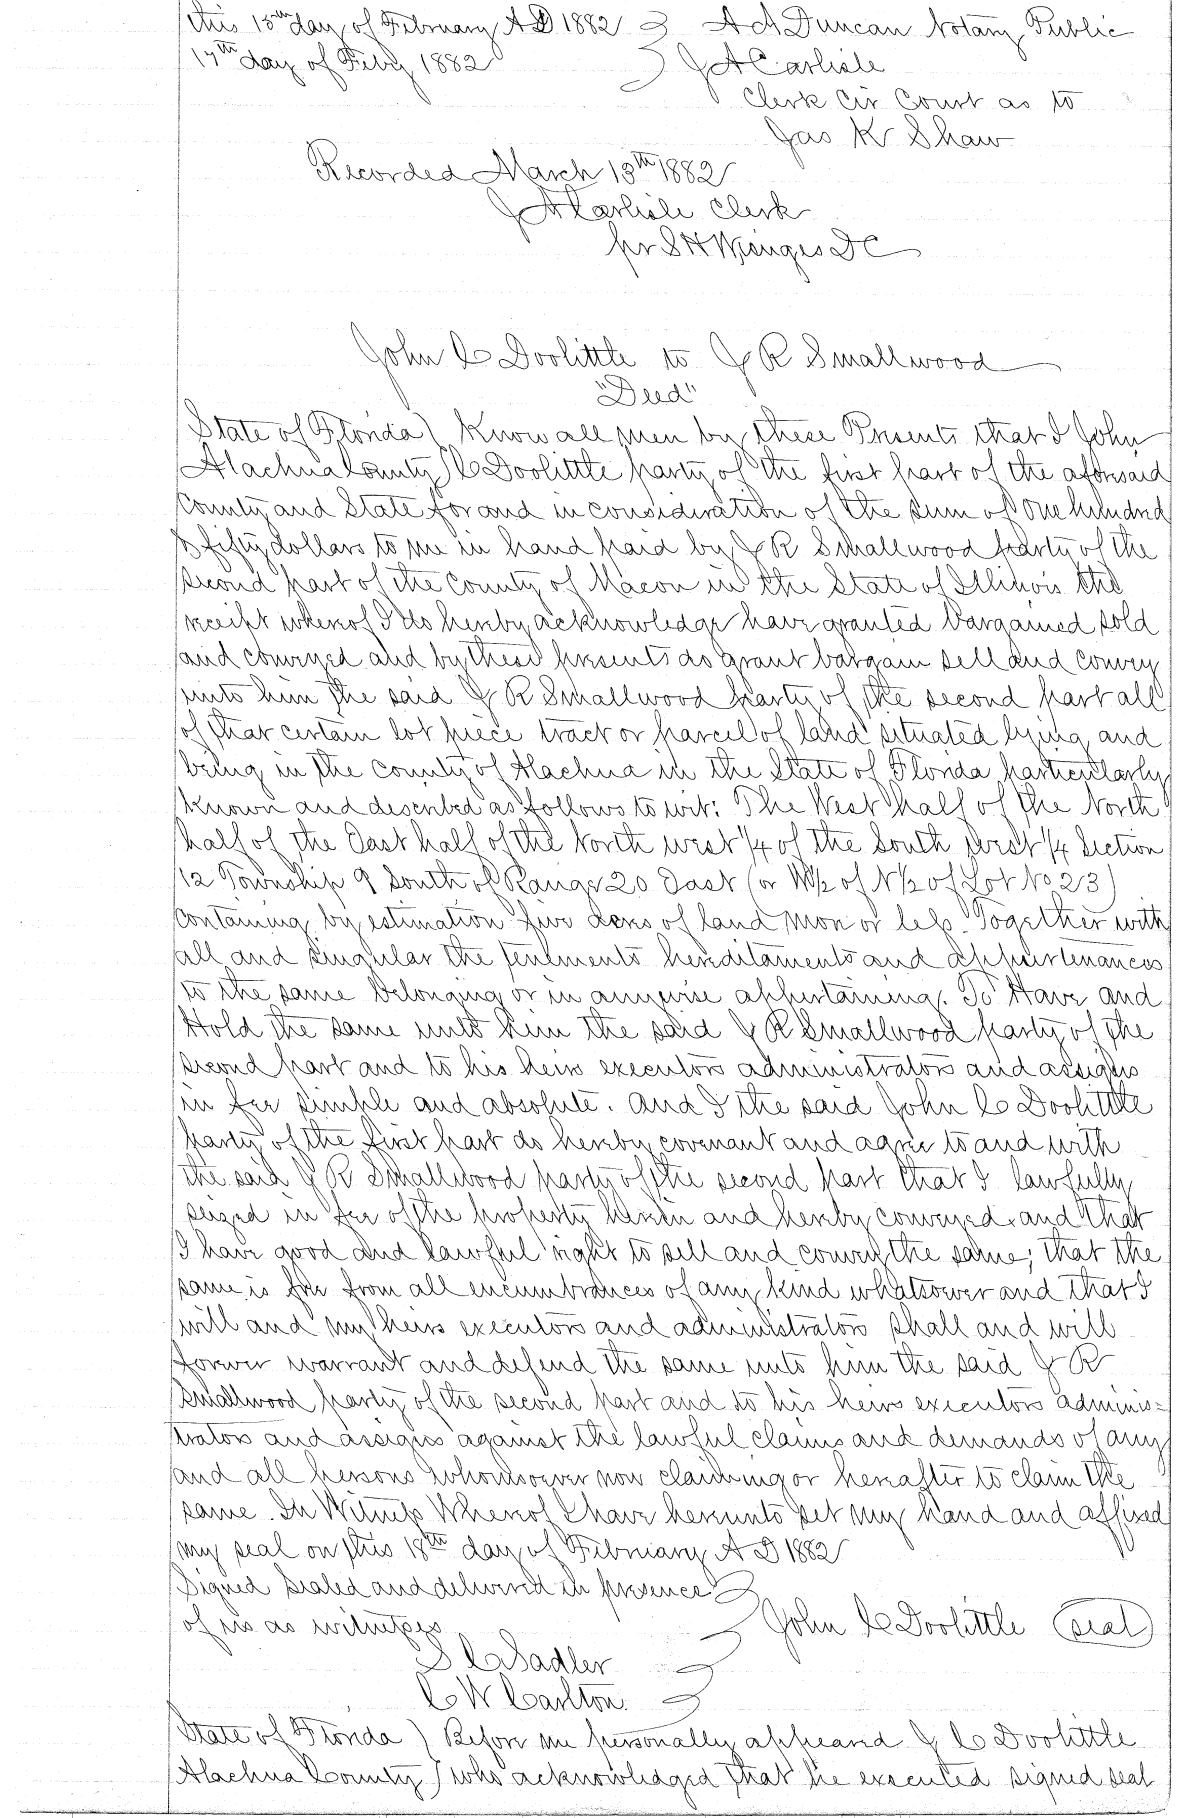 this 15th day of February A D 1882 A A Duncan Notary Public
17th day of Feby 1882 J A Carlisle
Clerk Cir Court as to
Jas K Shaw
Recorded March 13th 1882
J A Carlisle Clerk
pr S H Wienges D C
John C Doolittle to J R Smallwood
"Deed"
State of Florida ) Know all men by these Presents that I John
Alachua County ) C Doolittle party of the first part of the aforesaid
County and State for and in consideration of the sum of one hundred
& fifty dollars to me in hand paid by J R Smallwood party of the
second part of the County of Macon in the State of Illinois the
receipt whereof I do hereby acknowledge have granted bargained sold
and conveyed and by these presents do grant bargain sell and convey
unto him the said J R Smallwood party of the second part all
of that certain lot piece tract or parcel of land situated lying and
being in the county of Alachua in the State of Florida particularly
known and described as follows to wit: The West half of the North
half of the East half of the North west 1/4 of the South West 1/4 Section
12 Township 9 South of Range 20 East (or W½ of N½ of Lot No 23)
containing by estimation five acres of land more or less. Together with
all and singular the tenements hereditaments and appurtenances
to the same belonging or in anywise appertaining. To Have and
Hold the same unto him the said J R Smallwood party of the
second part and to his heirs executors administrators and assigns
in fee simple and absolute. And I the said John C Doolittle
party of the first part do hereby covenant and agree to and with
the said J R Smallwood party of the second part that I lawfully
seized in fee of the property herein and hereby conveyed and that
I have good and lawful right to sell and convey the same; that the
same is free from all encumbrances of any kind whatsoever and that I
will and my heirs executors and administrators shall and will
forever warrant and defend the same unto him the said J R
Smallwood party of the second part and to his heirs executors adminis=
trators and assigns against the lawful claims and demands of any
and all persons whomsoever now claiming or hereafter to claim the
same. In Witness Whereof I have hereunto set my hand and affixed
my seal on this 18th day of February A D 1882
Signed Sealed and delivered in presence
of us as witnesses John C Doolittle (seal)
S C Sadler
C W Carlton
State of Florida ) Before me personally appeared J C Doolittle
Alachua County ) who acknowledged that he executed signed seal